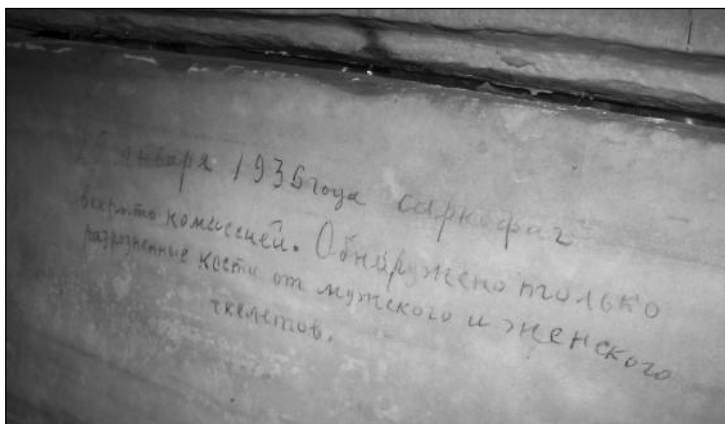 января 1936 года саркофаг
вскрыто комиссией. Обнаружено только
разрозненные кости от мужского и женского
скелетов.